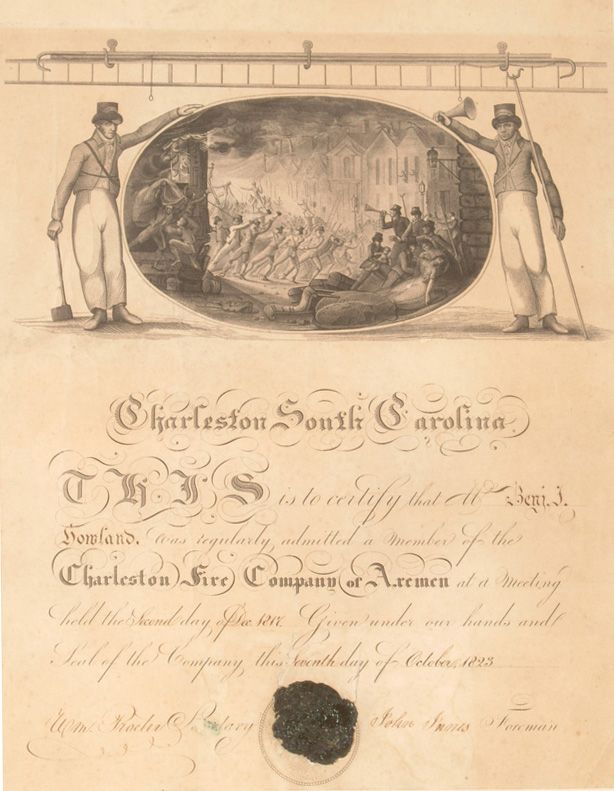 Charleston South Carolina
THIS is to certify that Mr. Benj. J.
Howland. was regularly admitted a Member of the
Charleston Fire Company of Axemen at a Meeting
held the Second day of Dec. 1817. Given under our hands and
Seal of the Company, this Seventh day of October, 1823
Wm. Procter Secretary John Innes Foreman